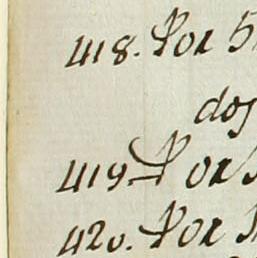 418. Por 5
dos
419 Por
420. Por